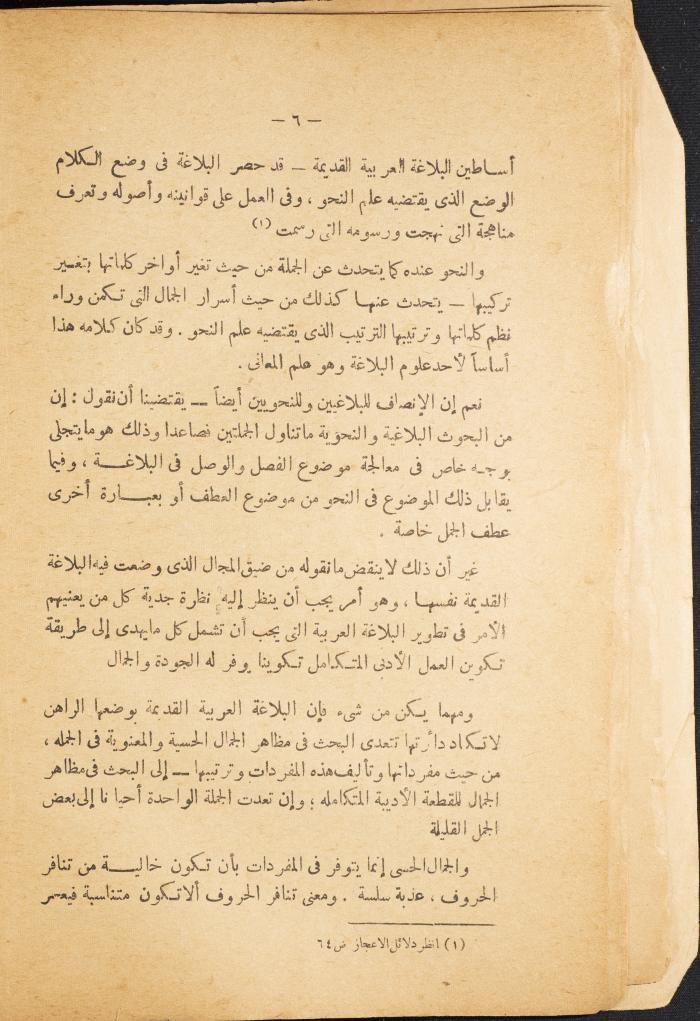 — ٦ —
أساطين البلاغة العربية القديمة — قد حصر البلاغة فى وضع الكلام
الوضع الذى يقتضيه علم النحو ، وفى العمل على قوانينه وأصوله وتعرف
مناهجة التى نهجت ورسومه التى رسمت (١)
والنحو عنده كما يتحدث عن الجملة من حيث تغير أواخر كلماتها بتغير
تركيبها — يتحدث عنها كذلك من حيث أسرار الجمال التى تكمن وراء
نظم كلماتها وترتيبها الترتيب الذى يقتضيه علم النحو . وقد كان كلامه هذا
أساساً لأحد علوم البلاغة وهو علم المعانى .
نعم إن الإنصاف للبلاغيين وللنحويين أيضاً — يقتضينا أن نقول : إن
من البحوث البلاغية والنحوية ما تناول الجملتين فصاعدا وذلك هو مايتجلى
بوجه خاص فى معالجة موضوع الفصل والوصل فى البلاغة ، وفيما
يقابل ذلك الموضوع فى النحو من موضوع العطف أو بعبارة أخرى
عطف الجمل خاصة .
غير أن ذلك لا ينقض ما نقوله من ضيق المجال الذى وضعت فيه البلاغة
القديمة نفسها ، وهو أمر يجب أن ينظر إليه نظرة جدية كل من يعنيهم
الأمر فى تطوير البلاغة العربية التى يجب أن تشمل كل مايهدى إلى طريقة
تكوين العمل الأدبى المتكامل تكوينا يوفر له الجودة والجمال
ومهما يكن من شىء فإن البلاغة العربية القديمة بوضعها الراهن
لاتكاد دائرتها تتعدى البحث فى مظاهر الجمال الحسية والمعنوية فى الجمله ،
من حيث مفرداتها وتأليف هذه المفردات وترتيبها — إلى البحث فى مظاهر
الجمال للقطعة الأدبية المتكامله ؛ وإن تعدت الجملة الواحدة أحيانا إلى بعض
الجمل القليلة
والجمال الحسى إنما يتوفر فى المفردات بأن تكون خالية من تنافر
الحروف ، عذبة سلسة . ومعنى تنافر الحروف ألاتكون متناسبة فيعسر
(١) انظر دلائل الاعجاز ص ٦٤